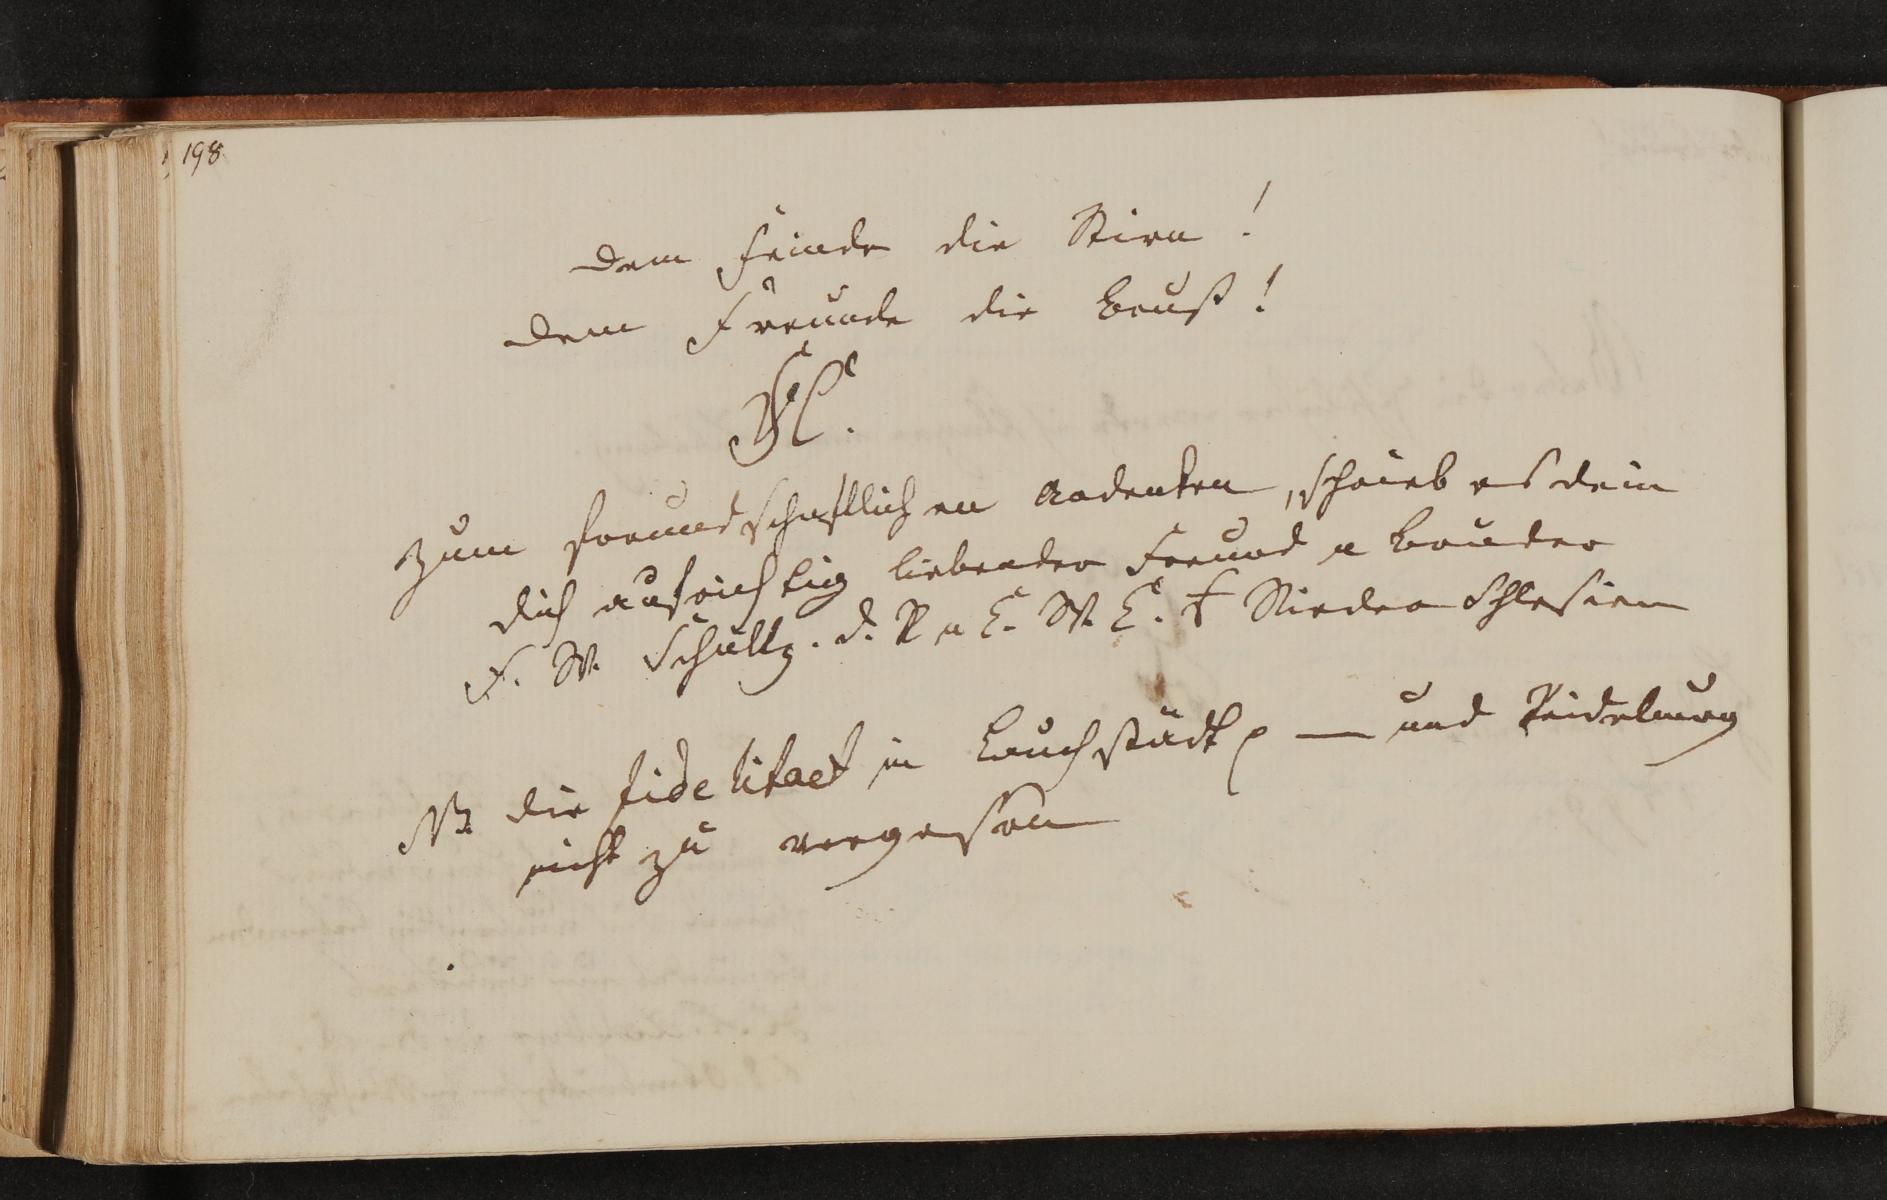 198
Dem Feinde die Stirn!
Dem Freunde die Brust!
Zum freundschaftlichen Andenken, schrieb es dein
dich aufrichtig liebender Freund u Bruder
F. W. Schultz. d. R u C. W. B. † Nieder Schlesien
NB die fidelitaet in Lauchstädt — und Reideburg
nicht zu vergessen